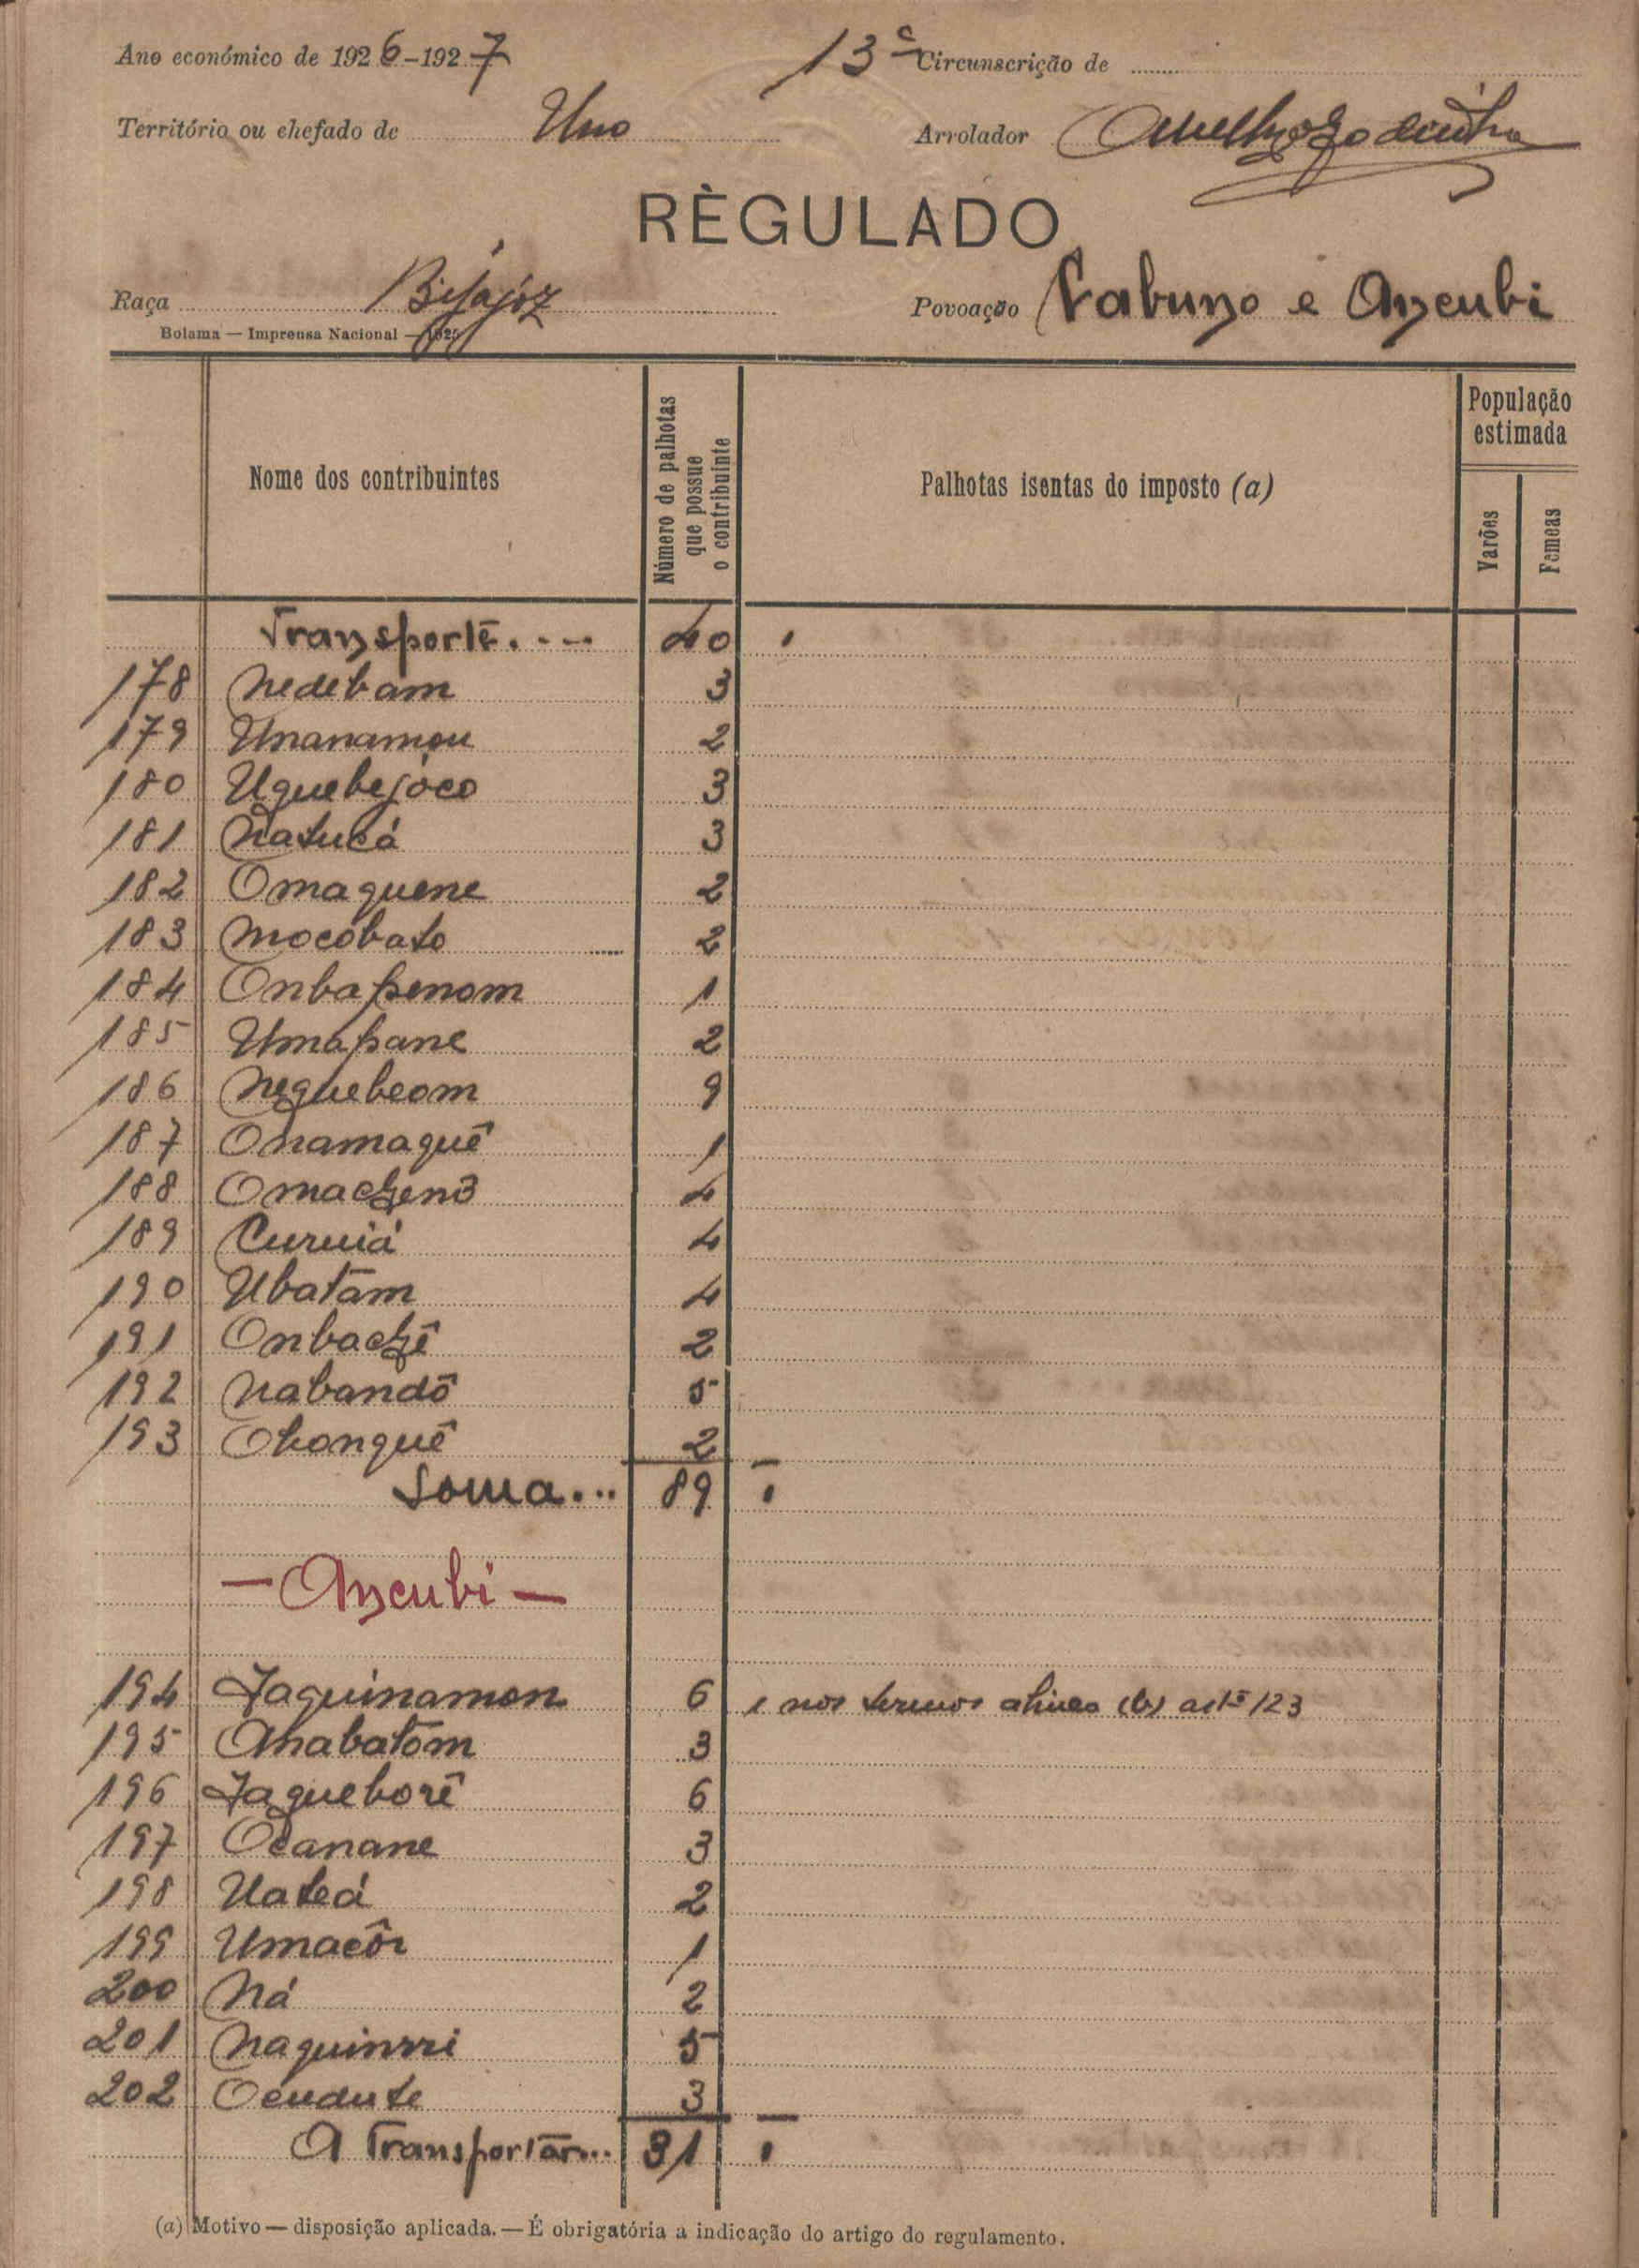 Ano económico de 1926-1927 13ª Circunscrição de
Território ou chefado de Uno Arrolador
RÈGULADO
Raça Bijagóz Povoação Cabuno e Ancubi
Bolama — Imprensa Nacional — 1925
Nome dos contribuintes
Número de palhotas que possue o contribuinte
Palhotas isentas do imposto (a)
População estimada
Varões
Femeas
Transporte.--- 40
178 Nedebam 3
179 Unanamou 2
180 Uquebejóco 3
181 Natucá 3
182 Omaquene 2
183 Mocobato 2
184 Onbapenom 1
185 Umapane 2
186 Nequebeom 9
187 Onamaquê 1
188 4
189 Curuiá 4
190 Ubatam 4
191 Onbachê 2
192 Nabandô 5
193 Ohonquê 2
Soma... 89
— Ancubi —
194 Jaquinamon 6 1 nos termos alinea (b) artº 123
195 Anabatom 3
196 Jaqueborê 6
197 Ocanane 3
198 Uateá 2
199 Umacôr 1
200 Ná 2
201 Naquinrri 5
202 Ocudute 3
A Transportar... 31
(a) Motivo — disposição aplicada. — É obrigatória a indicação do artigo do regulamento.